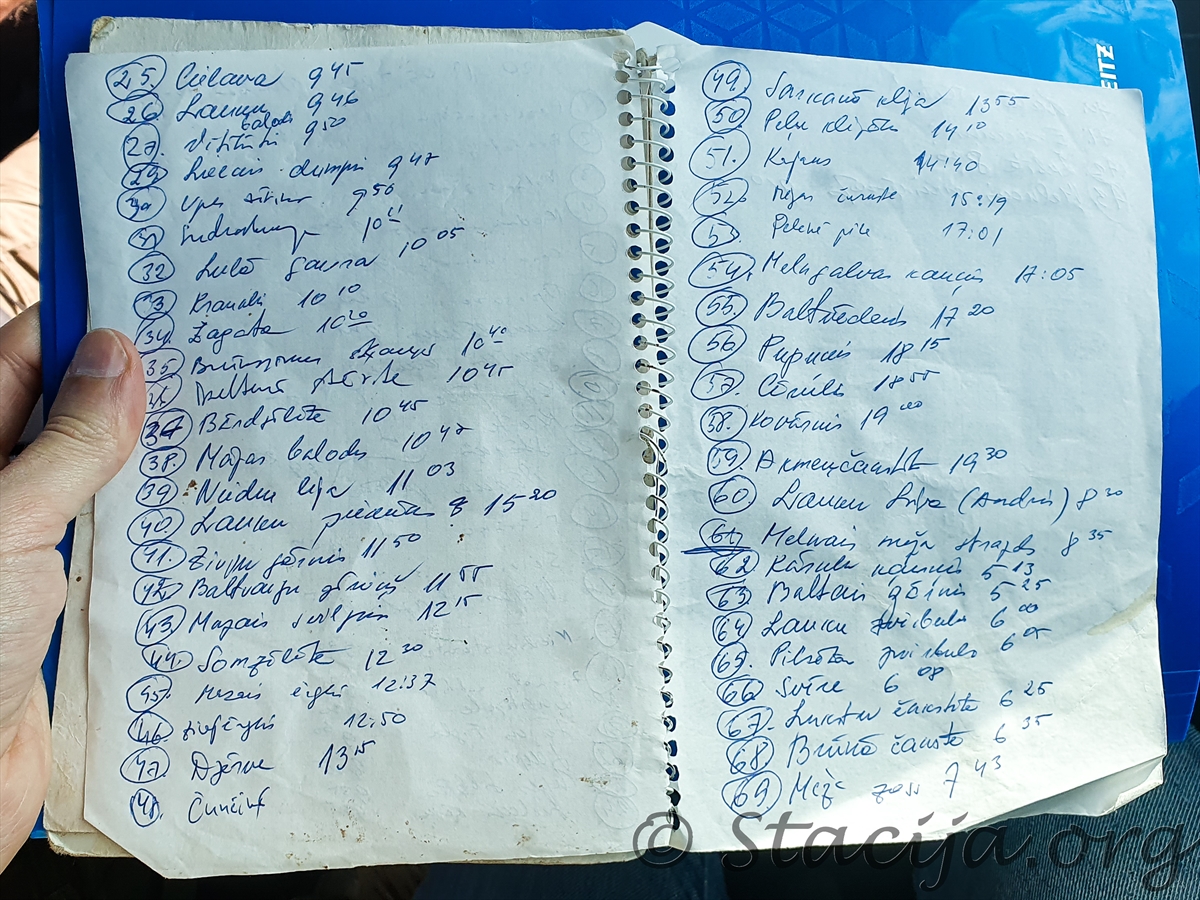 25. Cielava 9 45
26. Lauku 9 46
27. balodi 9 50
29. 9 47
30. Upes 9 50
31. 10
32. Lielā gaura 10 05
33. Kraukļi 10 10
34. Žagata 10 20
35. 10 40
36. Dzeltenā stērste 10 45
37 Bārdzīlīte 10 45
38. Mājas balodis 10 47
39. Niedru lija 11 03
40. Lauku 8 15 20
41. Zivju gārnis 11 50
42. Baltvaigu 11 55
43. Mazais svilpis 12 15
44. Somzīlīte 12 30
45. Mazais ērglis 12:37
46 12:50
47. Dzērve 13 15
48. Čuņčiņš
49. Sarkanā klija 13 55
50 Peļu klijāns 14 10
51. Kajaks 14:40
52. 15:19
53. Pelēkā pīle 17:01
54. Melngalvas kauķis 17:05
55. Baltvēderis 17 20
56 Pupuķis 18 15
57. Cīrulis 18 55
58. Kovārnis 19 00
59 Akmeņčakstīte 19 30
60 Lauku lija (Andris) 8 20
61. Melnais meža strazds 8 35
62 kauķis 5 13
63 Baltais gārnis 5 25
64 Lauku zvirbulis 6 00
65. Pilsētas zvirbulis 6 05
66 Svīre 6 08
67. Lukstu čakstīte 6 25
68 Brūnā čakste 6 35
69 Meža zoss 7 43
EITZ
© Stacija.org